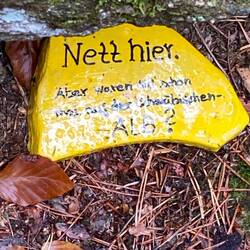 Nett hier.
Aber waren Sie schon
mal auf der Schwäbischen-
ALB?